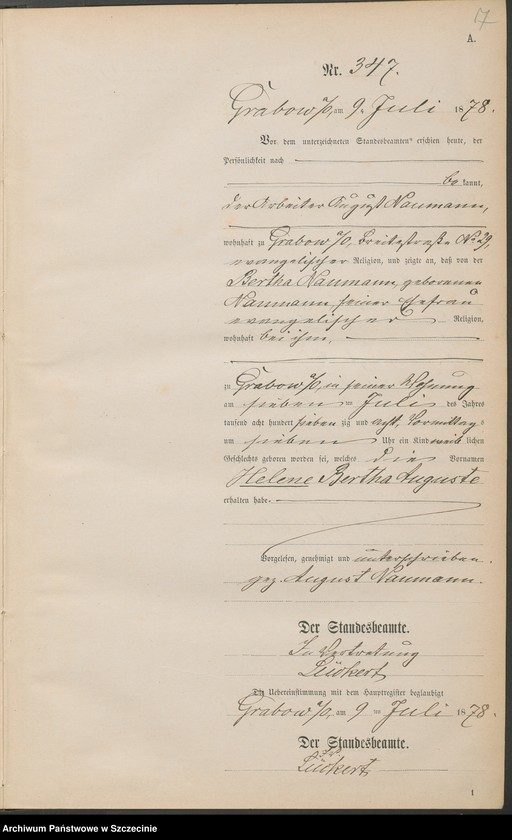 17
A.
Nr. 347.
Grabow a/O, am 9. Juli 1878.
Vor dem unterzeichneten Standesbeamten erschien heute, der
Persönlichkeit nach
be kannt,
der Arbeiter August Naumann,
wohnhaft zu Grabow a/O, Breitestraße No 29,
evangelischer Religion, und zeigte an, daß von der
Bertha Naumann, geborenen
Naumann, seiner Ehefrau
evangelischer Religion,
wohnhaft bei ihm,
zu Grabow a/O, in seiner Wohnung
am sieben ten Juli des Jahres
tausend acht hundert sieben zig und acht, Vormittags
um sieben Uhr ein Kind weib lichen
Geschlechts geboren worden sei, welches die Vornamen
Helene Bertha Auguste
erhalten habe.
Vorgelesen, genehmigt und unterschrieben.
gez. August Naumann.
Der Standesbeamte.
In Vertretung
Lückert
Die Uebereinstimmung mit dem Hauptregister beglaubigt
Grabow a/O, am 9 ten Juli 1878.
Der Standesbeamte.
Lückert
1
Archiwum Państwowe w Szczecinie